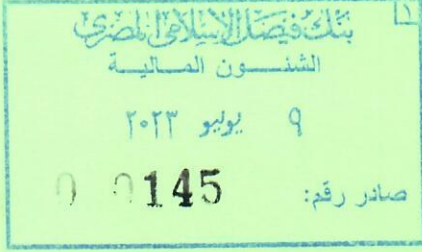 بنك فيصل الإسلامي المصرى
الشئـــون المــاليــة
٩ يوليو ٢٠٢٣
صادر رقم: 0 0145